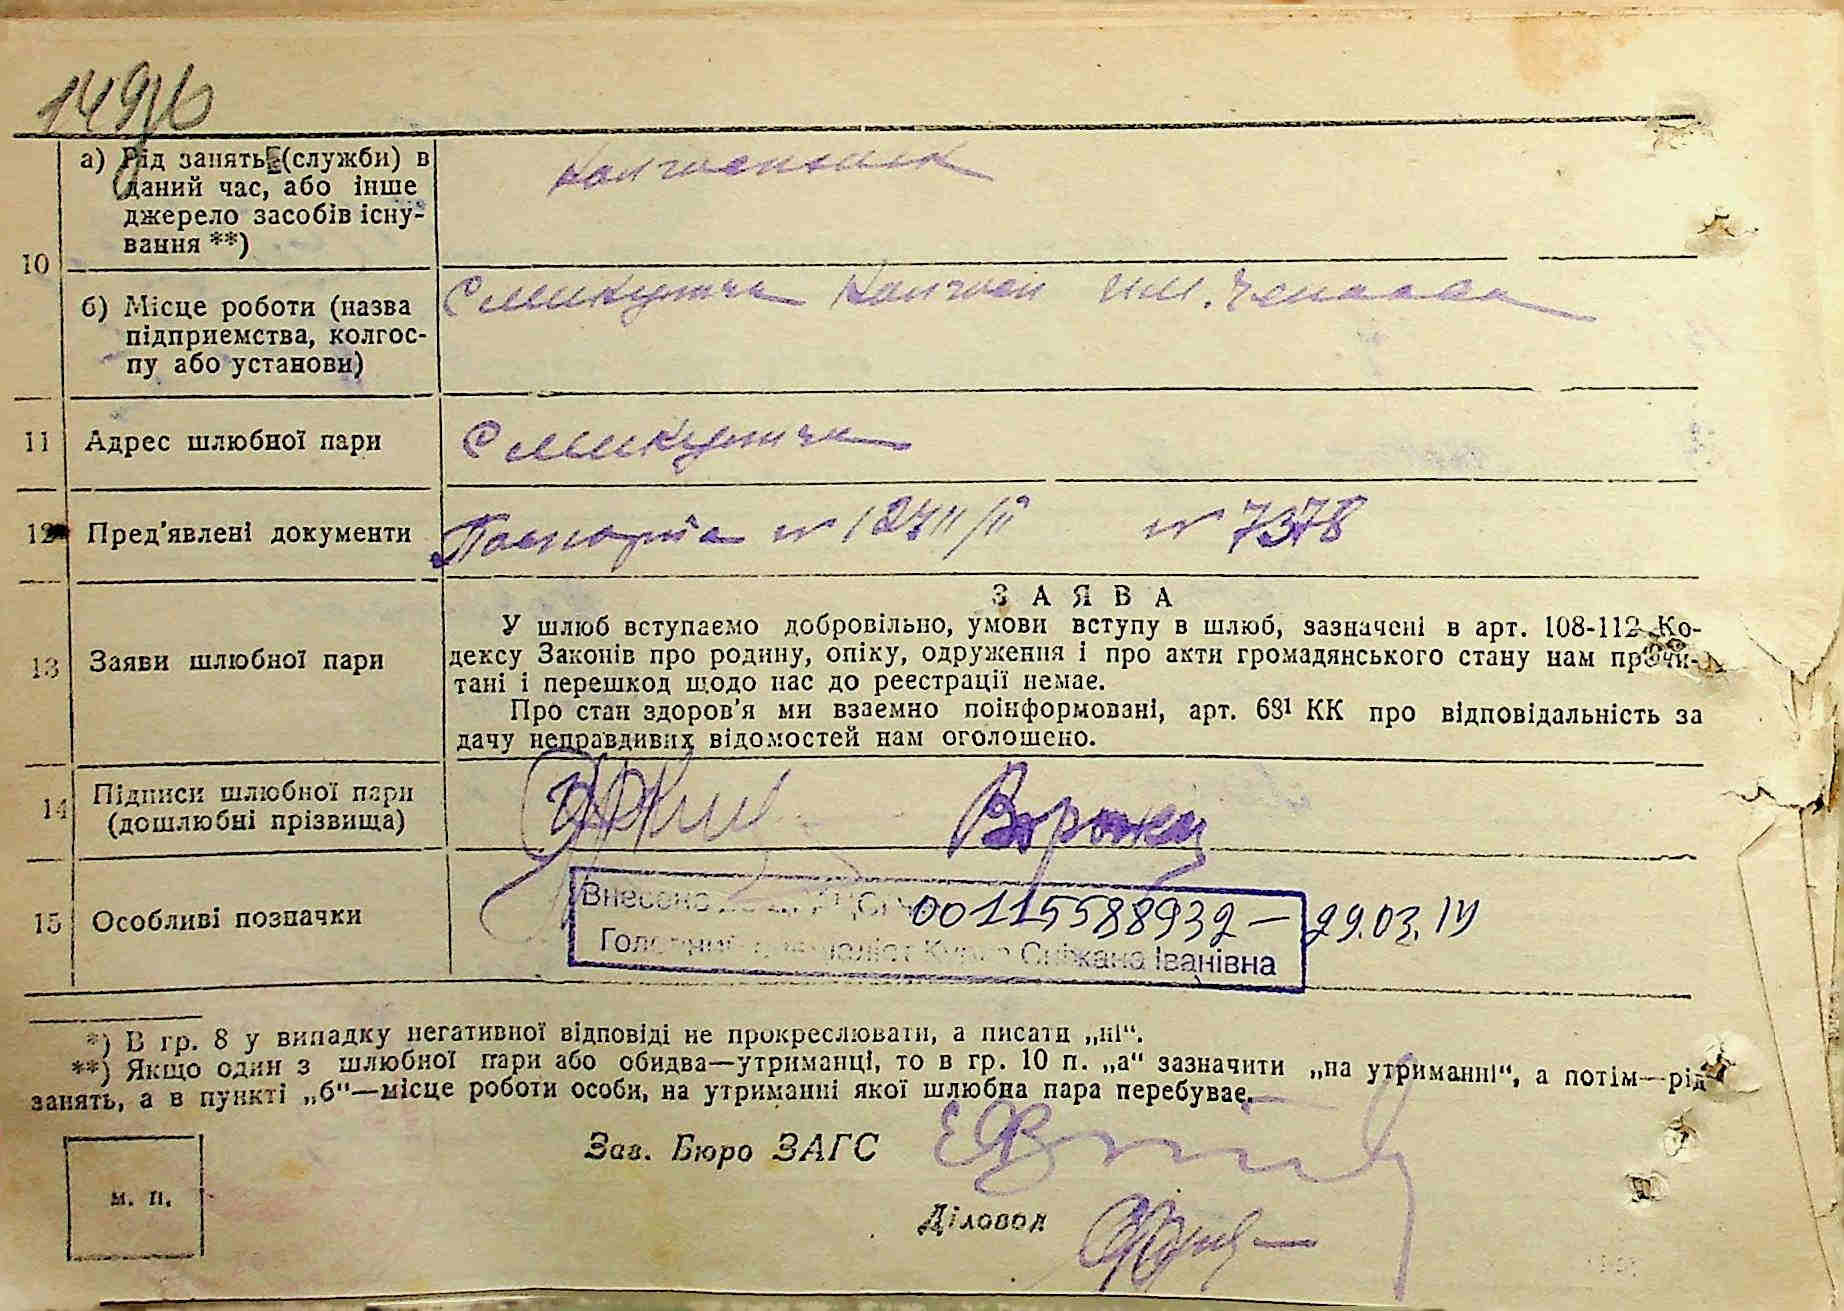 10
а) Рід занять (служби) в
даний час, або інше
джерело засобів існу-
вання **)
Колгоспник
б) Місце роботи (назва
підприємства, колгос-
пу або установи)
С Микулич Колгосп им.
11 Адрес шлюбної пари С Микулич
12 Пред'явлені документи Паспорта № № 7378
13 Заяви шлюбної пари
ЗАЯВА
У шлюб вступаємо добровільно, умови вступу в шлюб, зазначені в арт. 108-112 Ко-
дексу Законів про родину, опіку, одруження і про акти громадянського стану нам прочи-
тані і перешкод щодо нас до реєстрації немає.
Про стан здоров'я ми взаємно поінформовані, арт. 68¹ КК про відповідальність за
дачу неправдивих відомостей нам оголошено.
14 Підписи шлюбної пари
(дошлюбні прізвища)
15 Особливі позначки
Внесено 00115588932 — 29.03.14
Головний Сніжана Іванівна
*) В гр. 8 у випадку негативної відповіді не прокреслювати, а писати „ні“.
**) Якщо один з шлюбної пари або обидва—утриманці, то в гр. 10 п. „а“ зазначити „на утриманні“, а потім—рід
занять, а в пункті „б“—місце роботи особи, на утриманні якої шлюбна пара перебуває.
Зав. Бюро ЗАГС
м. п.
Діловод